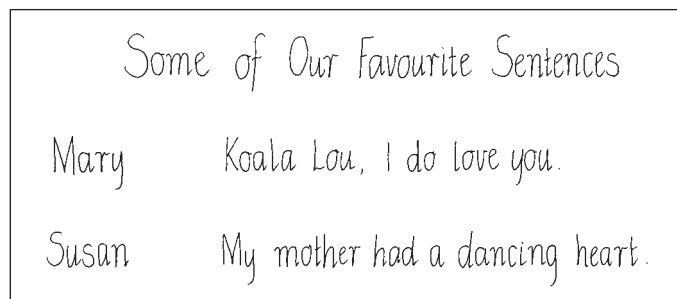 Some of Our Favourite Sentences
Mary Koala Lou, I do love you.
Susan My mother had a dancing heart.